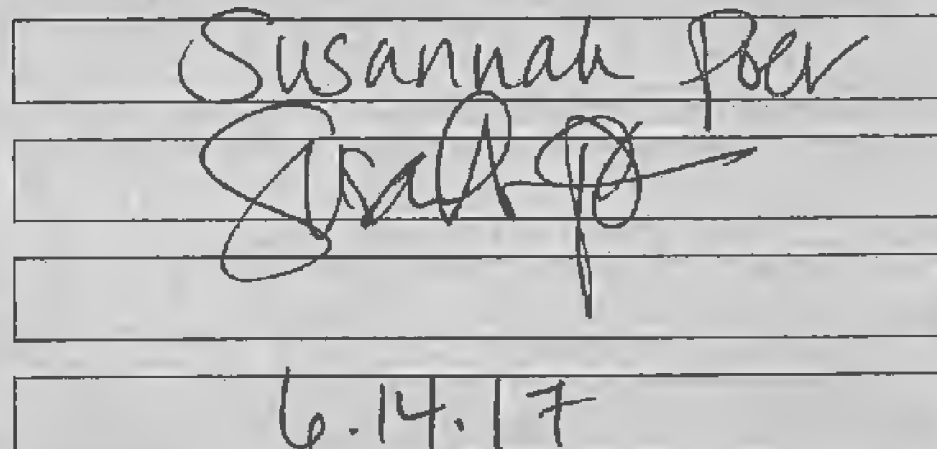 Susannah Poer
6.14.17